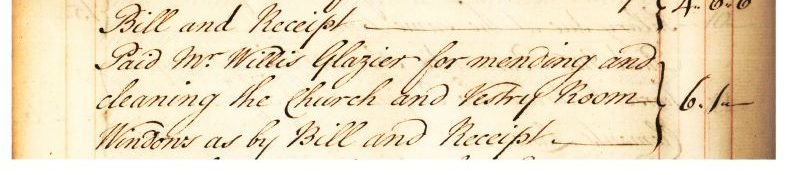 Bill and Receipt 4 " 6 " 6
Paid Mr. Willis Glazier for mending and
cleaning the Church and Vestry Room 6 " 1 " —
Windows as by Bill and Receipt